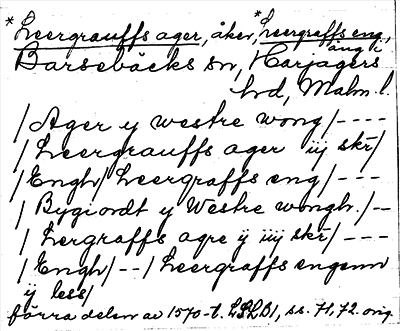 *Leergrauffs ager, åker, *Leergraffs eng,
äng i
Barsebäcks sn, Harjagers
hd, Malm. l.
/ Ager y westre wong / ----
/ Leergrauffs ager iij skr /
/ Engh / Leergraffs eng / ---
/ Bygiordt y Westre wongh. / --
/ Lergraffs agre ij iiij skr / ---
/ Engh / -- / Leergraffs engenn
ij less /
förra delen av 1570-t. LSLB1, ss. 71, 72. orig.